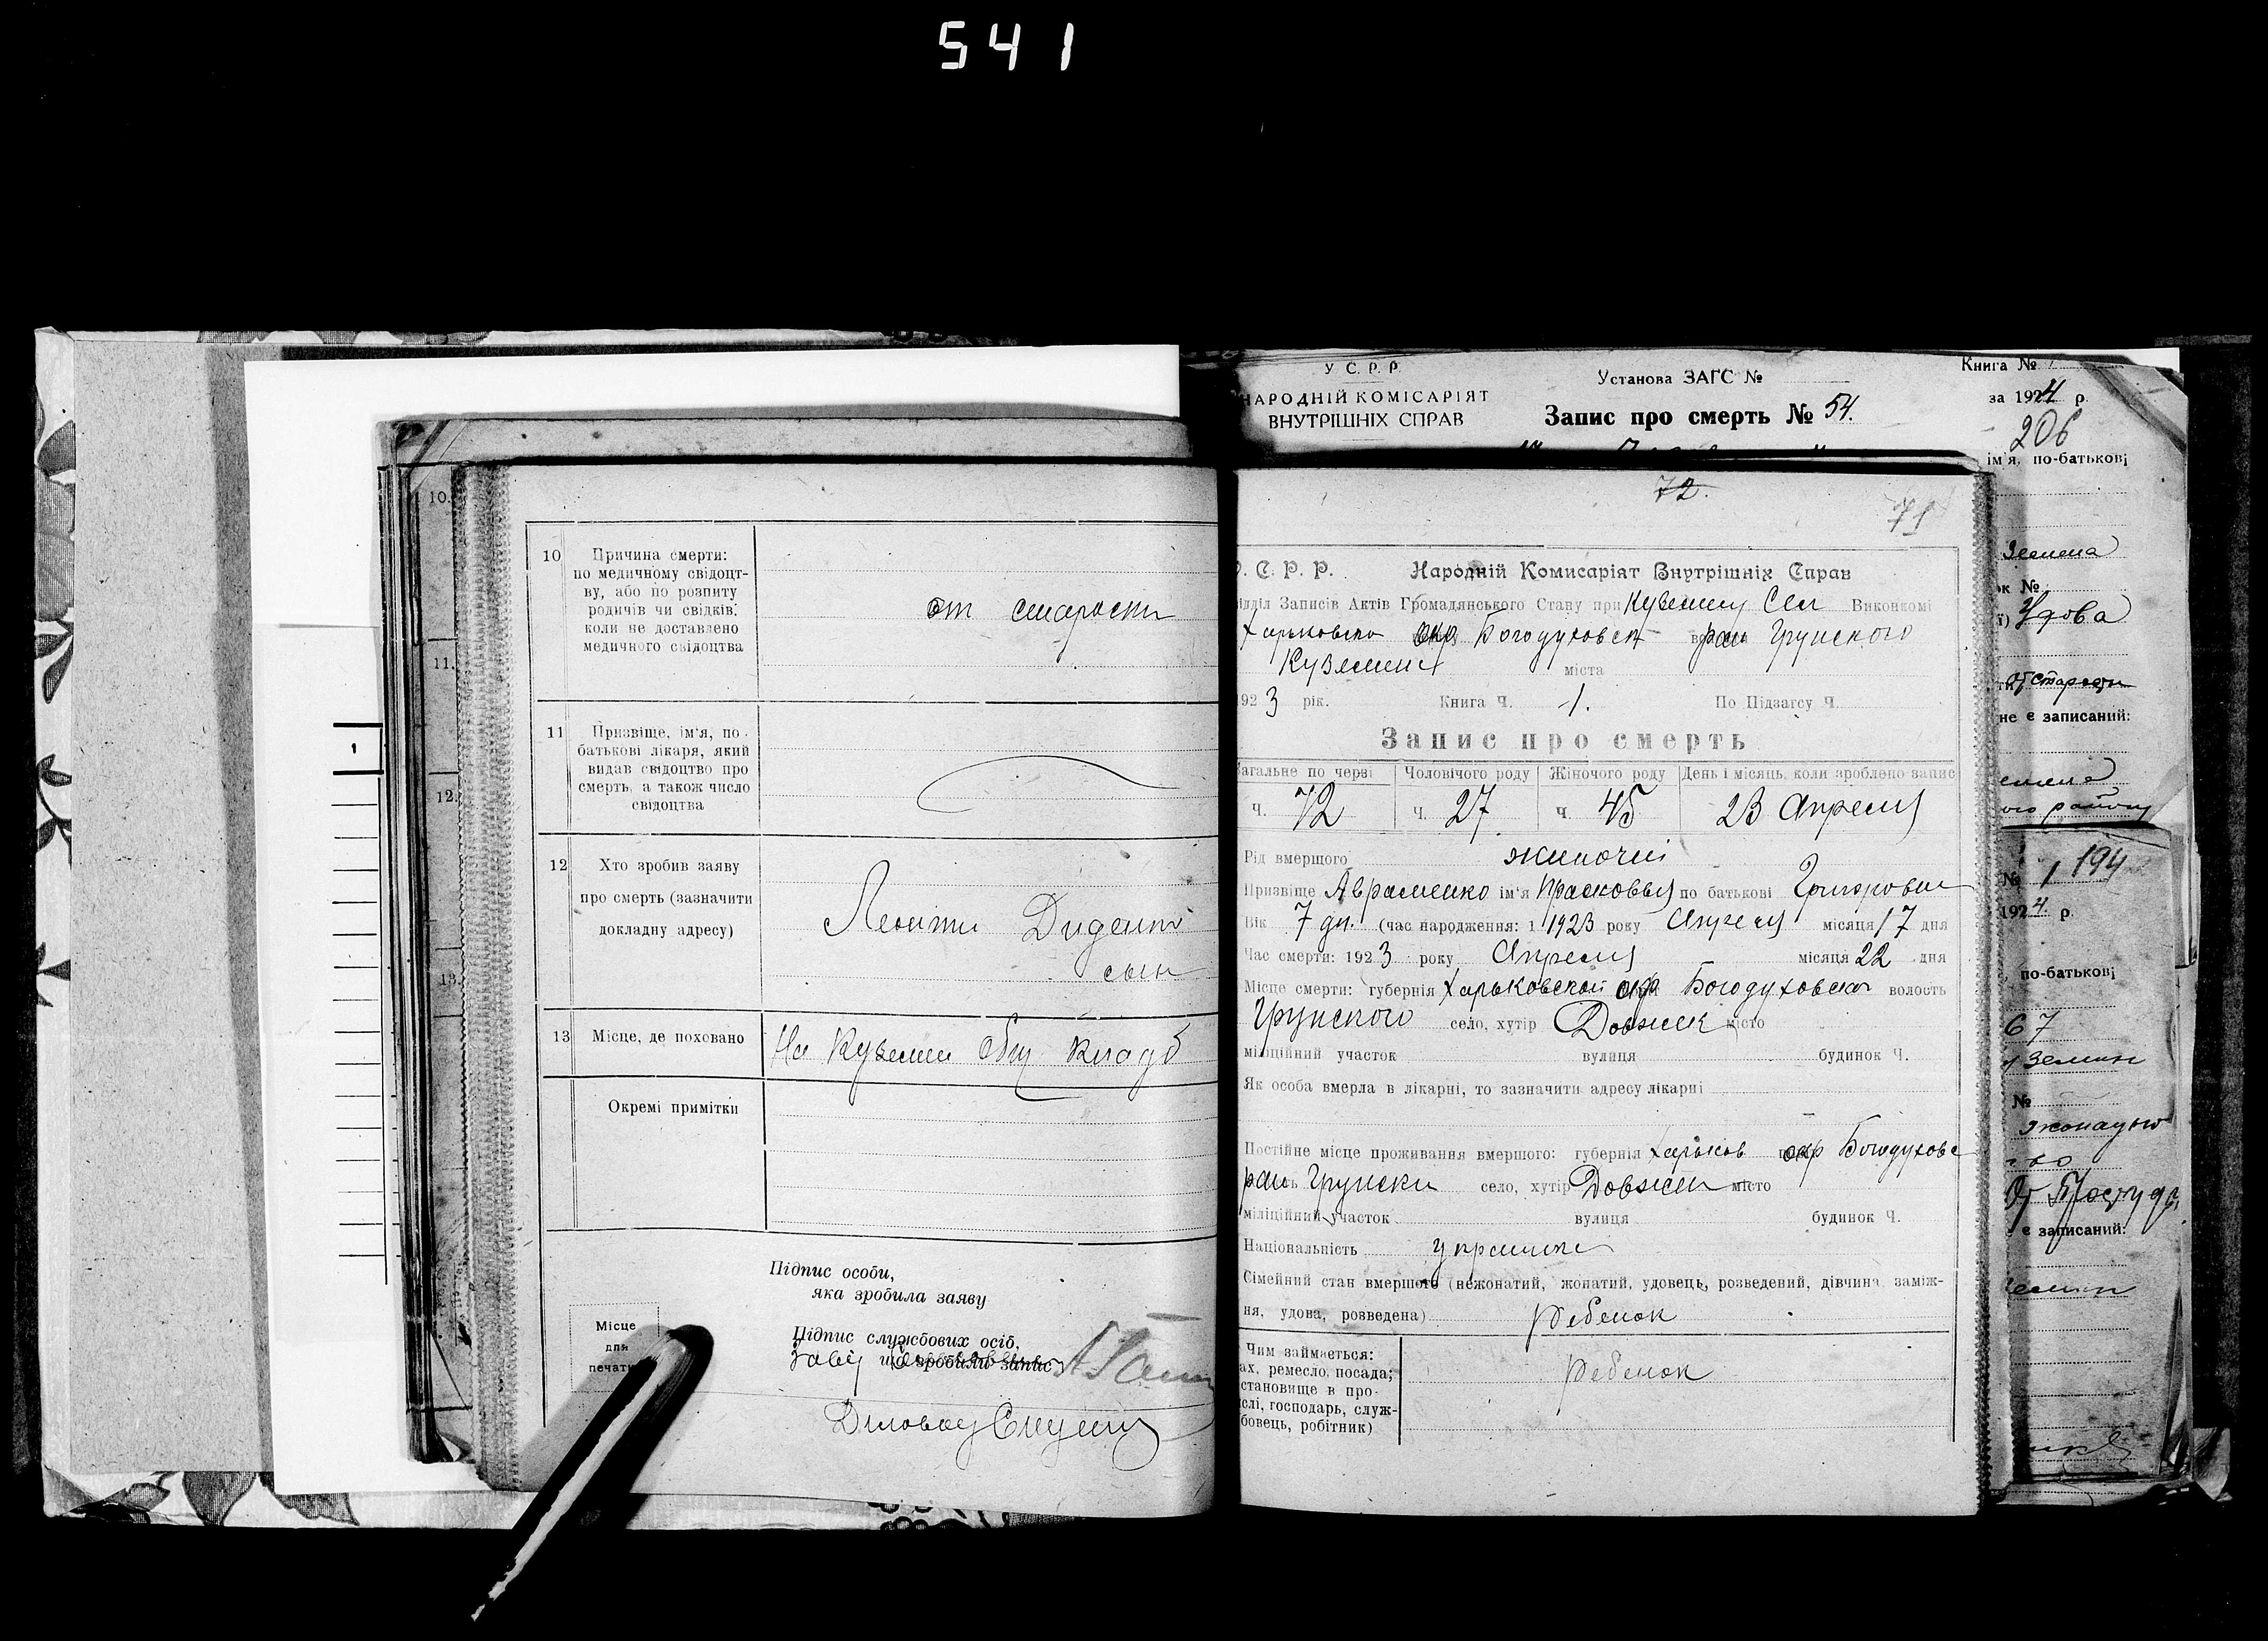 541
10
Причина смерти:
по медичному свідоцт-
ву, або по розпиту
родичів чи свідків,
коли не доставлено
медичного свідоцтва
от старости
11
Призвіще, ім'я, по-
батькові лікаря, який
видав свідоцтво про
смерть, а також число
свідоцтва
12
Хто зробив заяву
про смерть (зазначити
докладну адресу)
Леонти Диденко
сын
13
Місце, де поховано
На Кузем общ кладб
Окремі примітки
Підпис особи,
яка зробила заяву
Місце
для
печати
Підпис службових осіб,
що зробили запис
10.
11.
12.
13.
1
У С. Р. Р.
НАРОДНІЙ КОМІСАРІЯТ
ВНУТРІШНІХ СПРАВ
Установа ЗАГС №
Запис про смерть № 54.
Книга №
за 1924 р.
206
ім'я, по-батькові
72.
71
У. С. Р. Р. Народній Комисаріят Внутрішніх Справ
Відділ Записів Актів Громадянського Стану при Куземин Сел Виконкомі
Харьковско окр Богодуховск рай Грунского
Куземин міста
1923 рік. Книга Ч. 1. По Підзагсу Ч.
Запис про смерть
Загальне по черзі
Чоловічого роду
Жіночого роду
День і місяць, коли зроблено запис
Ч. 72
Ч. 27
Ч. 45
23 Апреля
Рід вмершого жиночий
Призвіще Авраменко ім'я Прасковья по батькові Григоровн
Вік 7 дн. (час народження: 1 1923 року Апреля місяця 17 дня
Час смерти: 1923 року Апреля місяця 22 дня
Місце смерти: губернія Харьковской окр Богодуховско волость
Грунского село, хутір Довжек місто
міліційний участок вулиця будинок Ч.
Як особа вмерла в лікарні, то зазначити адресу лікарні
Постійне місце проживання вмершого: губернія Харьков окр Богодухов
рай Грунски село, хутір Довжек місто
міліційний участок вулиця будинок Ч.
Національність украинк
Сімейний стан вмершого (нежонатий, жонатий, удовець, розведений, дівчина, заміж-
ня, удова, розведена) ребенок
Чим займається:
ах, ремесло, посада;
становище в про-
слі, господарь, служ-
бовець, робітник)
ребенок
Удова
От старости
не є записаний:
ого району
№ 1 194
1924 р.
по-батькові
67
№
є записаний: